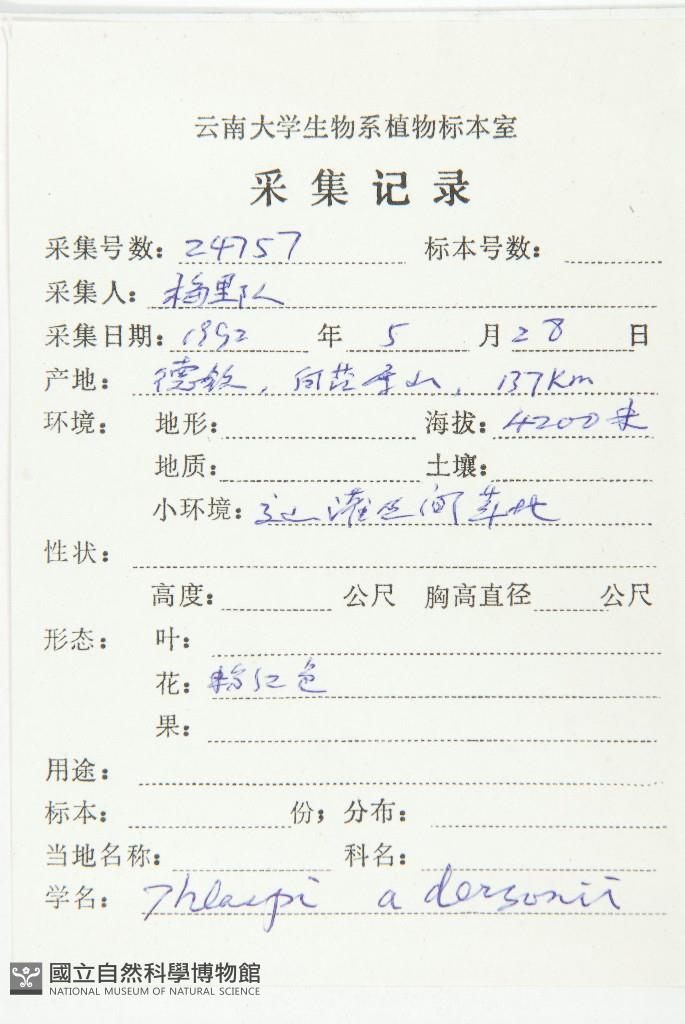 云南大学生物系植物标本室
采集记录
采集号数：24757 标本号数：
采集人：梅里队
采集日期：1992 年 5 月 28 日
产地：德钦，白茫雪山，137Km
环境： 地形： 海拔：4200米
地质： 土壤：
小环境：灌丛间草地
性状：
高度： 公尺 胸高直径 公尺
形态： 叶：
花：粉红色
果：
用途：
标本： 份；分布：
当地名称： 科名：
学名：Thlaspi a dersonii
國立自然科學博物館
NATIONAL MUSEUM OF NATURAL SCIENCE